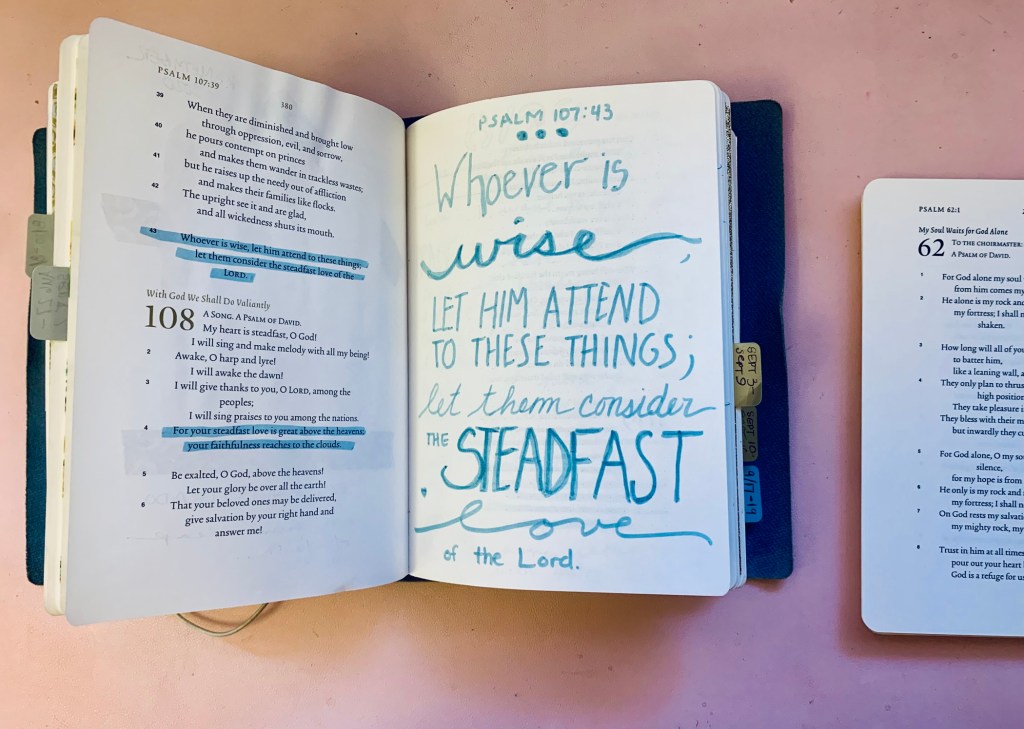 PSALM 107:39
380
39 When they are diminished and brought low
through oppression, evil, and sorrow,
40 he pours contempt on princes
and makes them wander in trackless wastes;
41 but he raises up the needy out of affliction
and makes their families like flocks.
42 The upright see it and are glad,
and all wickedness shuts its mouth.
43 Whoever is wise, let him attend to these things;
let them consider the steadfast love of the
LORD.
With God We Shall Do Valiantly
108 A SONG. A PSALM OF DAVID.
My heart is steadfast, O God!
I will sing and make melody with all my being!
2 Awake, O harp and lyre!
I will awake the dawn!
3 I will give thanks to you, O LORD, among the
peoples;
I will sing praises to you among the nations.
4 For your steadfast love is great above the heavens;
your faithfulness reaches to the clouds.
5 Be exalted, O God, above the heavens!
Let your glory be over all the earth!
6 That your beloved ones may be delivered,
give salvation by your right hand and
answer me!
PSALM 107:43
Whoever is
wise,
LET HIM ATTEND
TO THESE THINGS;
let them consider
THE STEADFAST
love
of the Lord.
SEPT 3-
SEPT 9
SEPT 10
9/17-19
PSALM 62:1
My Soul Waits for God Alone
62 TO THE CHOIRMASTER:
A PSALM OF DAVID.
1 For God alone my soul
from him comes my
2 He alone is my rock and
my fortress; I shall n
shaken.
3 How long will all of you
to batter him,
like a leaning wall, a
4 They only plan to thrus
high position
They take pleasure i
They bless with their m
but inwardly they cu
5 For God alone, O my sou
silence,
for my hope is from
6 He only is my rock and
my fortress; I shall n
7 On God rests my salvati
my mighty rock, my
8 Trust in him at all times
pour out your heart
God is a refuge for us